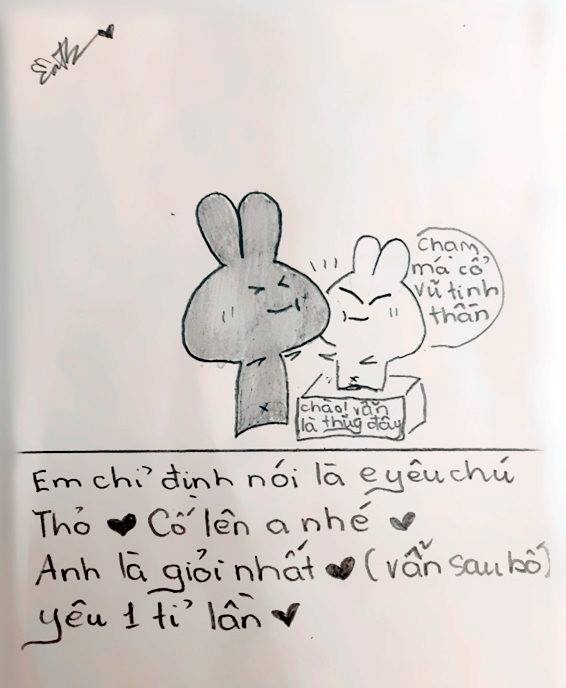 chạm
má cổ
vũ tinh
thần
chào! vẫn
là thùg đây
Em chỉ định nói là e yêu chú
Thỏ ♥ Cố lên a nhé ♥
Anh là giỏi nhất ♥ (vẫn sau bố)
yêu 1 tỉ lần ♥